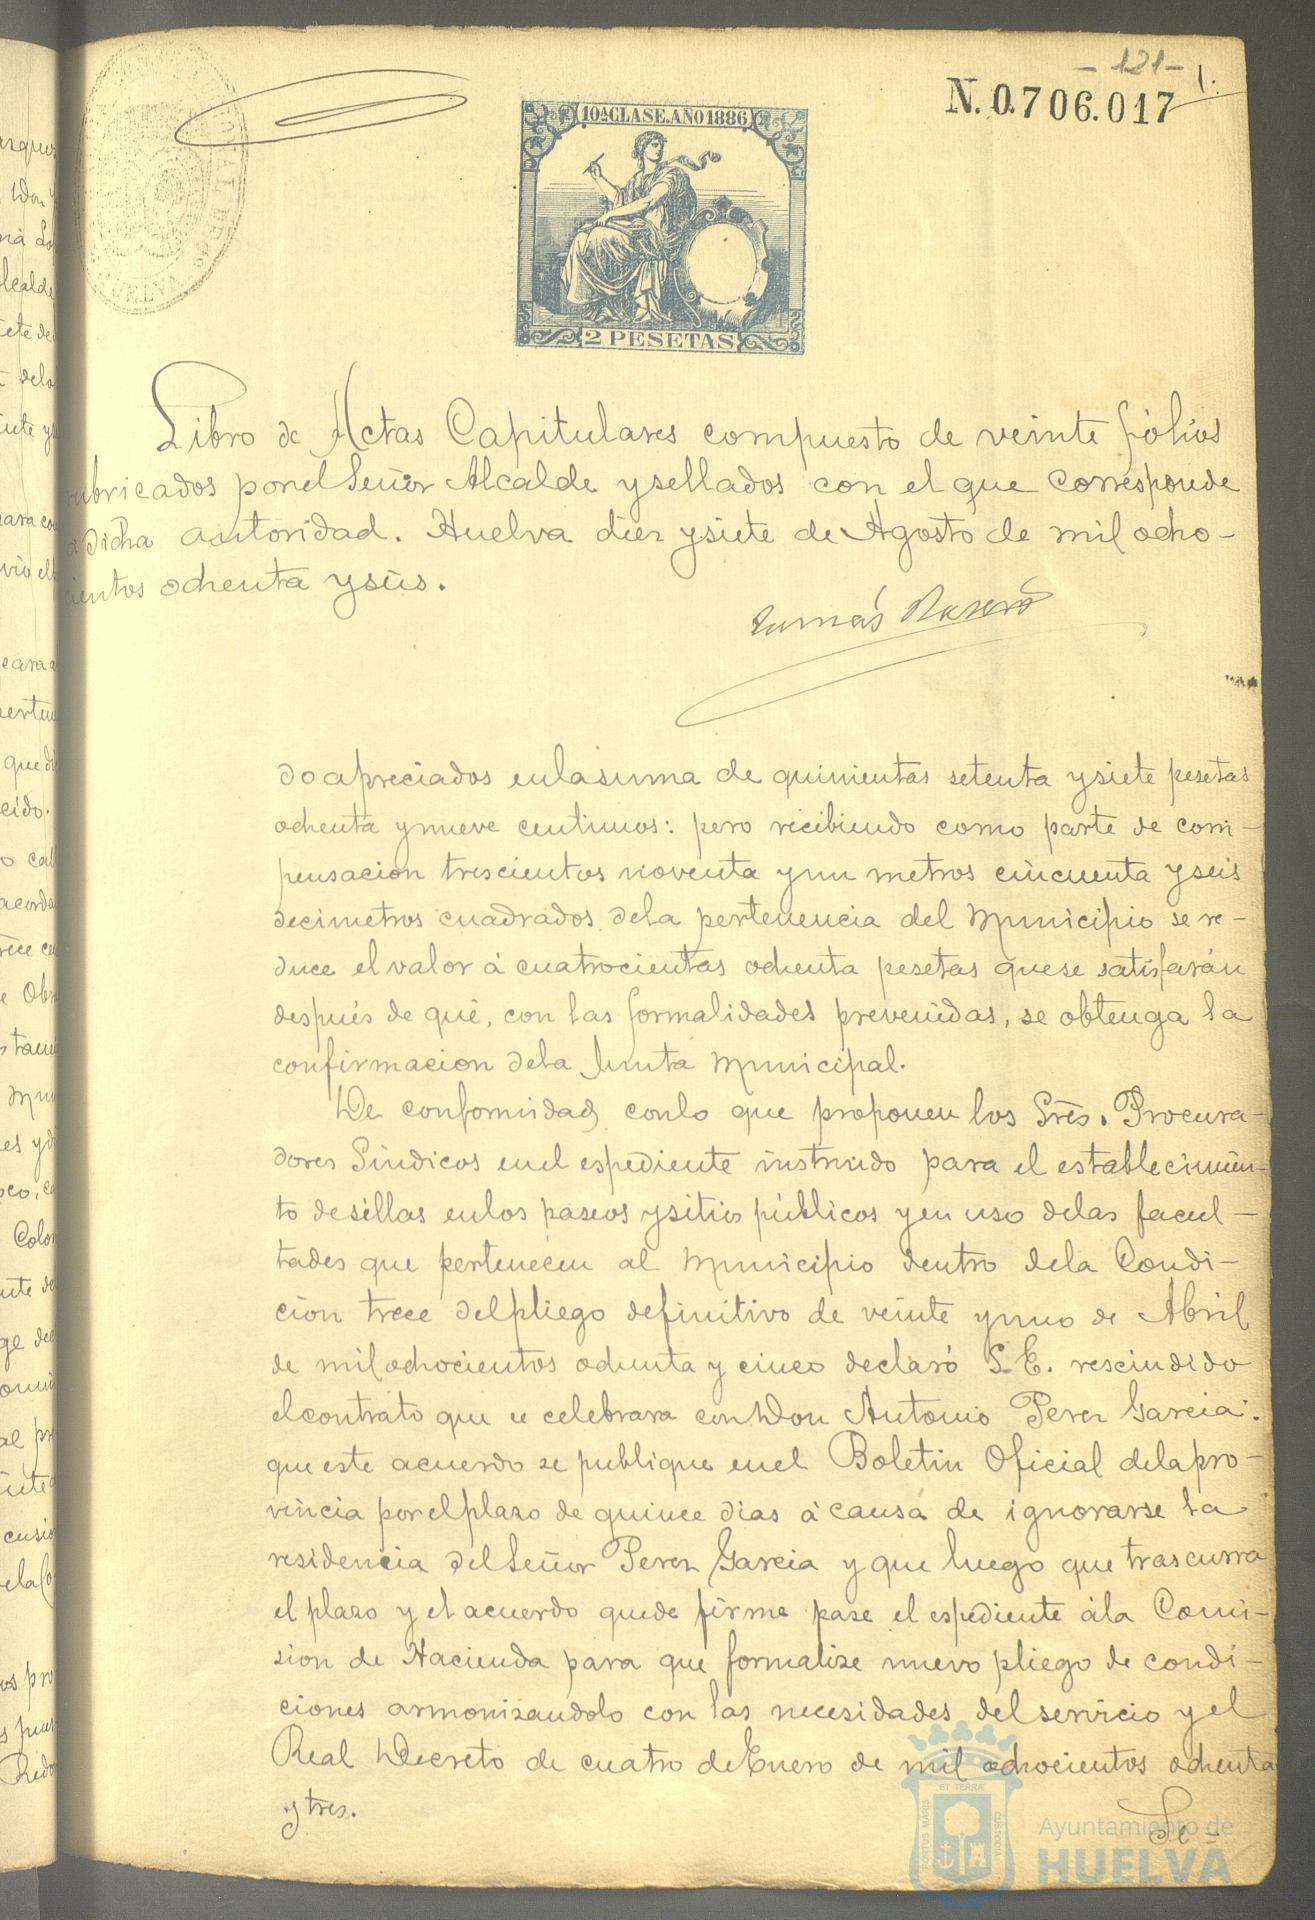 - 121 -
N. 0.706.017
1.
10ª CLASE. AÑO 1886
2 PESETAS
Libro de Actas Capitulares compuesto de veinte fólios
rubricados por el Señor Alcalde y sellados con el que corresponde
á dicha autoridad. Huelva diez y siete de Agosto de mil ocho-
cientos ochenta y seis.
Tomás
do apreciados en la suma de quinientas setenta y siete pesetas
ochenta y nueve centimos: pero recibiendo como parte de com-
pensacion trescientos noventa y un metros cincuenta y seis
decimetros cuadrados de la pertenencia del Municipio se re-
duce el valor á cuatrocientas ochenta pesetas que se satisfarán
después de que, con las formalidades prevenidas, se obtenga la
confirmacion de la Junta Municipal.
De conformidad con lo que proponen los Sres. Procura-
dores Sindicos en el espediente instruido para el establecimien-
to de sillas en los paseos y sitios públicos y en uso de las facul-
tades que pertenecen al Municipio dentro de la Condi-
cion trece del pliego definitivo de veinte y uno de Abril
de mil ochocientos ochenta y cinco declaró S. E. rescindido
el contrato que se celebrara con Don Antonio Perez Garcia:
que este acuerdo se publique en el Boletin Oficial de la pro-
vincia por el plazo de quince dias á causa de ignorarse la
residencia del Señor Perez Garcia y que luego que trascurra
el plazo y el acuerdo quede firme pase el espediente á la Comi-
sion de Hacienda para que formalize nuevo pliego de condi-
ciones armonizandolo con las necesidades del servicio y el
Real Decreto de cuatro de Enero de mil ochocientos ochenta
y tres.
Se-
PORTUS MARIS ET TERRÆ CUSTODIA
Ayuntamiento de
HUELVA